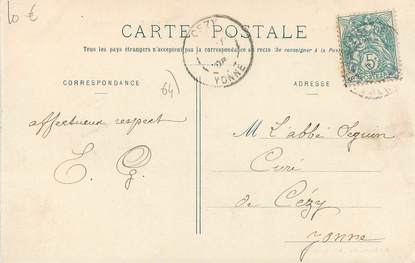 10 €
CARTE POSTALE
Tous les pays étrangers n'acceptent pas la correspondance au recto (Se renseigner à la Poste)
CÉZY
YONNE
CORRESPONDANCE
ADRESSE
64)
affectueux respect
E. G.
M. L'abbé Seguin
Curé
de Cézy
Yonne